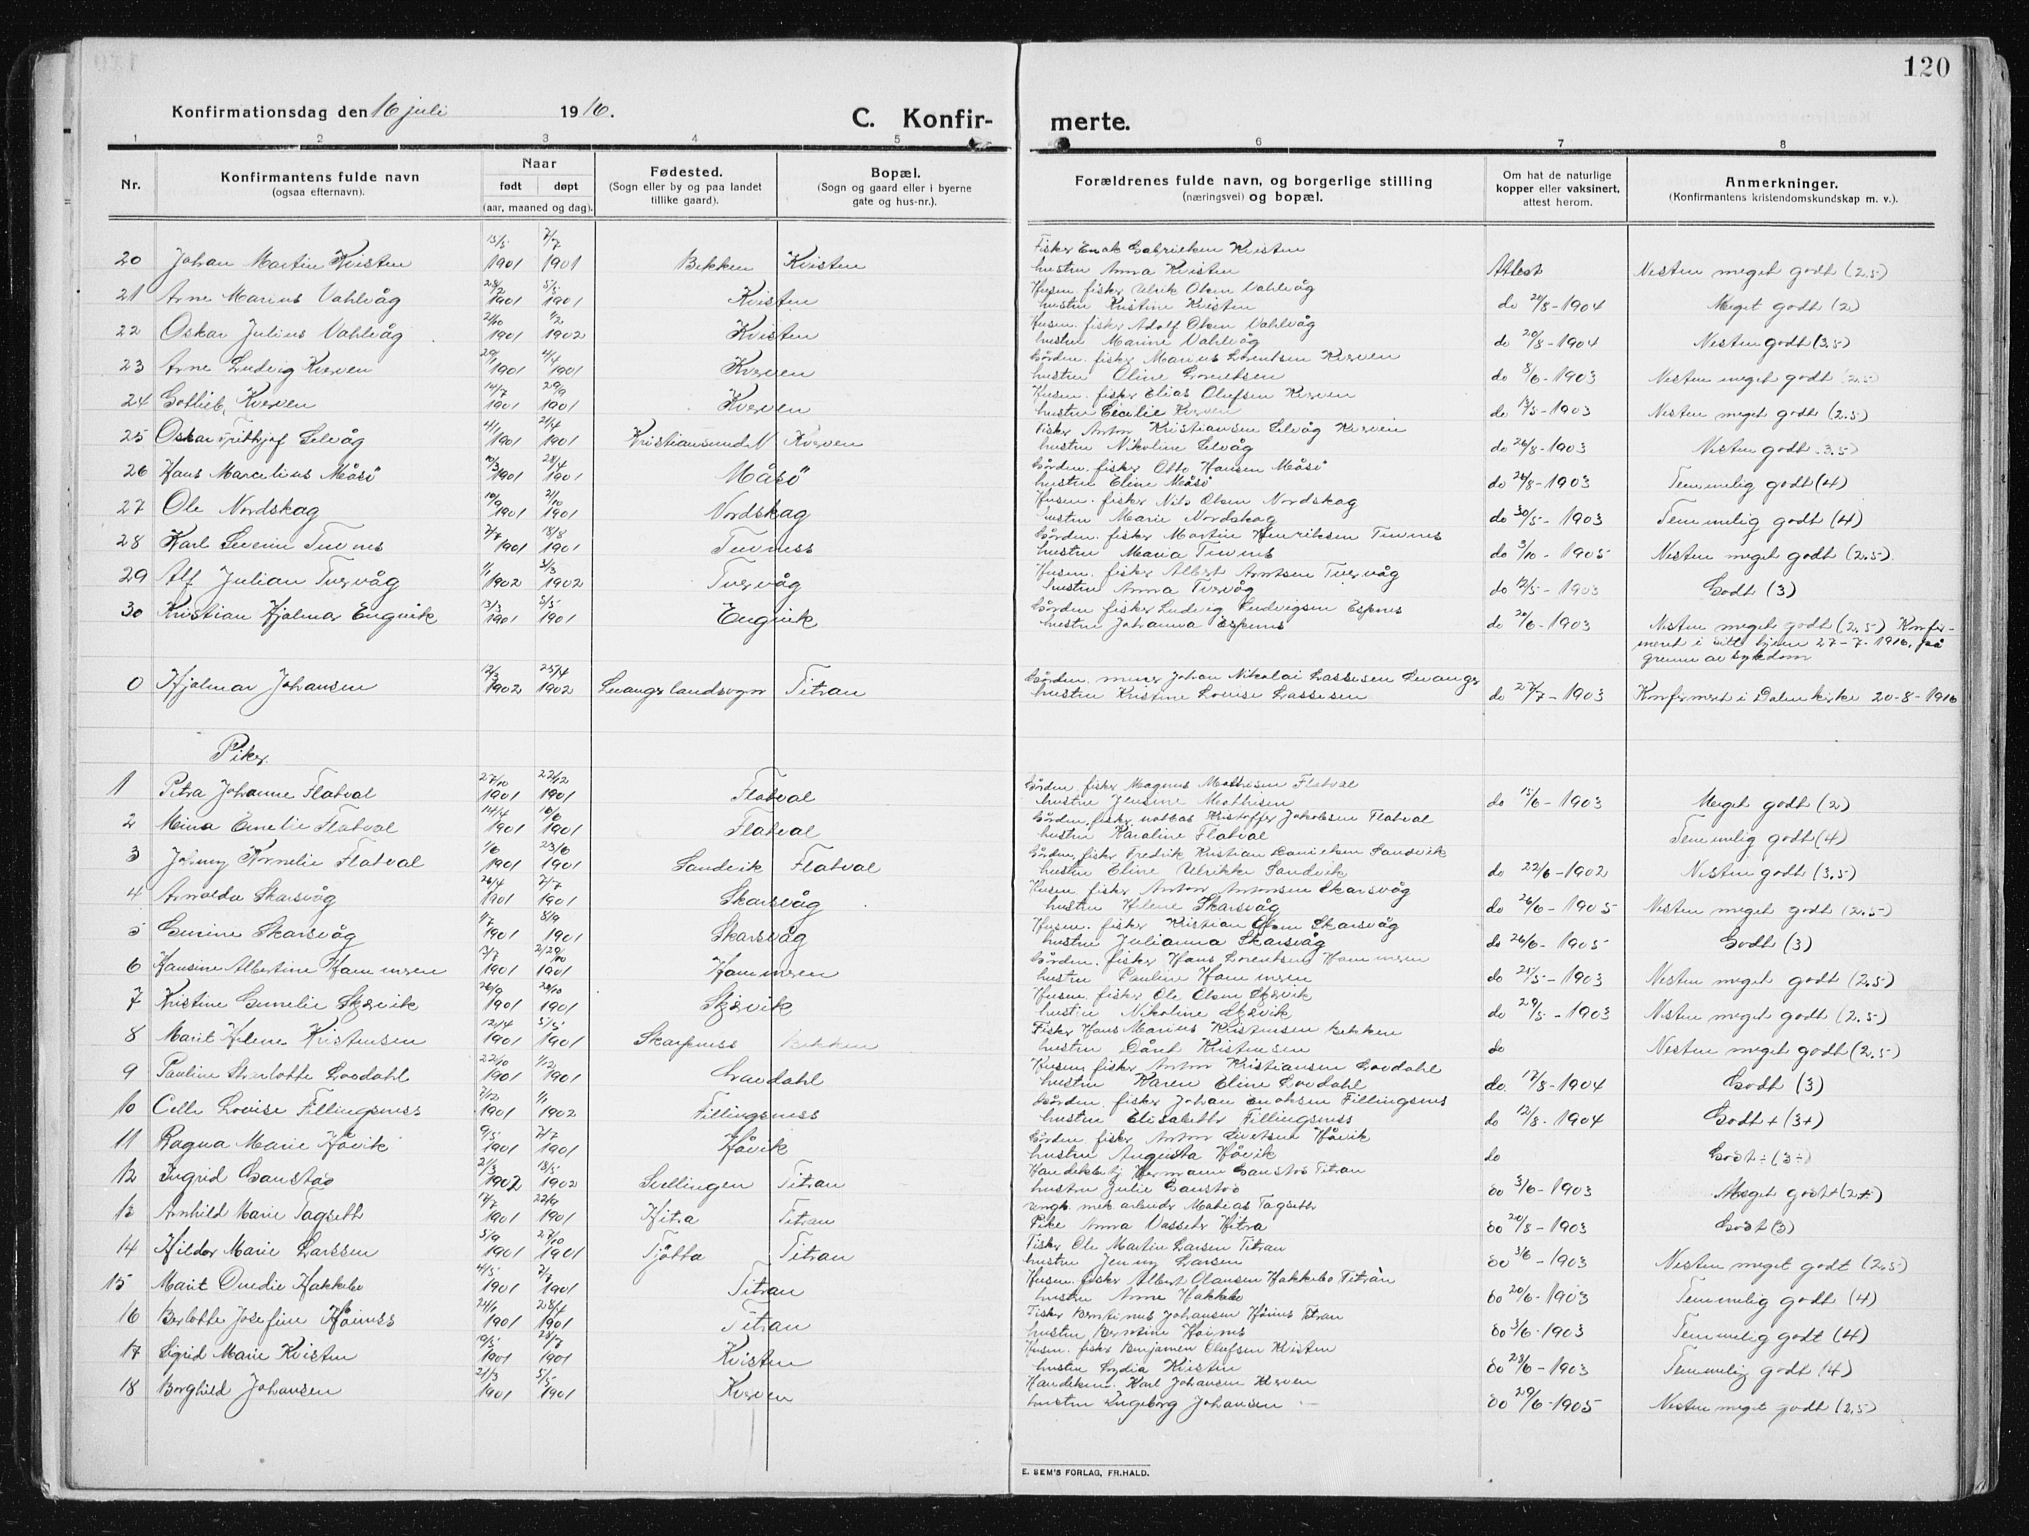 120
Konfirmationsdag den 16 juli 1916.
C. Konfirmerte.
1 2 3 4 5 6 7 8
Nr. Konfirmantens fulde navn (ogsaa efternavn). Naar født døpt (aar, maaned og dag). Fødested. (Sogn eller by og paa landet tillike gaard). Bopæl. (Sogn og gaard eller i byerne gate og hus-nr.). Forældrenes fulde navn, og borgerlige stilling (næringsvei) og bopæl. Om hat de naturlige kopper eller vaksinert, attest herom. Anmerkninger. (Konfirmantens kristendomskundskap m. v.).
20 Johan Martin Kvisten 13/5 1901 7/7 1901 Bekken Kvisten Fisker Enok Gabrielsen Kvisten hustru Anna Kvisten Attest Nesten meget godt (2.5)
21 Arne Marius Vahlvåg 1901 5/5 1901 Kvisten Husm. fisker Ulrik Olsen Vahlvåg hustru Kristine Kvisten do 20/8-1904 Meget godt (2)
22 Oskar Julius Vahlvåg 2/10 1901 1/2 1902 Kvisten Husm. fisker Adolf Olsen Vahlvåg hustru Marine Vahlvåg do 20/8-1904 Nesten godt (3.5)
23 Arne Ludvig Kverven 29/1 1901 4/4 1901 Kverven Gårdm. fisker Marius Lorentsen Kverven hustru Oline Lorentsen do 8/6-1903 Nesten meget godt (2.5)
24 Gotlieb Kverven 14/7 1901 29/9 1901 Kverven Husm. fisker Elias Olufsen Kverven hustru Cecilie Kverven do 13/5-1903 Nesten meget godt (2.5)
25 Oskar Fritthjof Selvåg 4/1 1901 21/4 1901 Kristiansund N Kverven Fisker Anton Kristiansen Selvåg Kverven hustru Nikoline Selvåg do 26/8-1903 Nesten godt 3.5)
26 Hans Marcelius Måsø 10/3 1901 28/4 1901 Måsø Gårdm. fisker Otto Hansen Måsø hustru Eline Måsø do 26/8-1903 Temmelig godt (4)
27 Ole Nordskag 10/9 1901 2/10 1901 Nordskag Husm. fisker Nils Olsen Nordskag hustru Marie Nordskag do 30/5-1903 Temmelig godt (4)
28 Karl Severin Tuvnes 7/7 1901 18/8 1901 Tuvness Gårdm. fisker Martin Henriksen Tuvnes hustru Maria Tuvnes do 3/10-1905 Nesten meget godt (2.5)
29 Alf Julian Tuervåg 1/1 1902 3/3 1902 Tuervåg Husm. fisker Albert Arntsen Tuervåg hustru Anna Tuervåg do 12/5-1903 Godt (3)
30 Kristian Hjalmar Engvik 3/3 1901 5/5 1901 Engvik Gårdm. fisker Ludvig Ludvigsen Espnes hustru Johanna Espnes do 20/6-1903 Nesten meget godt (2.5) Konfirmeret i sitt hjem 27-7-1916, på grunn av sykdom
0 Hjalmar Johansen 12/3 1902 25/4 1902 Levanger landsogn Titran Gårdm. murer Johan Nikolai Lassesen Levanger hustru Kristine Lovise Lassesen do 27/7-1903 Konfirmert i Dolm kirke 20-8-1916
Piker.
1 Petra Johanne Flatval 27/10 1901 22/12 1901 Flatval Gårdm. fisker Magnus Mathisen Flatval hustru Jensine Mathisen do 15/6-1903 Meget godt (2)
2 Mina Emelie Flatval 14/4 1901 16/6 1901 Flatval Gårdm. fisker notbas Kristoffer Jakobsen Flatval hustru Karoline Flatval Temmelig godt (4)
3 Johnny Kornelie Flatval 1/6 1901 23/6 1901 Sandvik Flatval Gårdm. fisker Fredrik Kristian Danielsen Sandvik hustru Eline Ulrikke Sandvik do 22/6-1902 Nesten godt (3.5)
4 Arnolda Skarsvåg 26/4 1901 7/7 1901 Skarsvåg Husm. fisker Anton Antonsen Skarsvåg hustru Helene Skarsvåg do 26/6-1905 Nesten meget godt (2.5)
5 Gurine Skarsvåg 1/7 1901 8/9 1901 Skarsvåg Husm. fisker Kristian Olsen Skarsvåg hustru Julianna Skarsvåg do 26/6-1905 Godt (3)
6 Hansine Albertine Hammeren 13/7 1901 1901 Hammeren Gårdm. fisker Hans Lorentsen Hammeren hustru Pauline Hammeren do 21/5-1903 Nesten meget godt (2.5)
7 Kristine Gunelie Skjevik 26/9 1901 20/10 1901 Skjevik Husm. fisker Ole Olsen Skjevik hustru Nikoline Skjevik do 29/5-1903 Nesten meget godt (2.5)
8 Marit Helene Kristensen 12/4 1901 5/5 1901 Skarpness Bekken Fisker Hans Marius Kristensen Bekken hustru Dåret Kristensen do Nesten meget godt (2.5)
9 Pauline Skarlotte Lovdahl 22/10 1901 1/12 1901 Lovdahl Husm. fisker Anton Kristiansen Lovdahl hustru Karen Eline Lovdahl do 17/8-1904 Godt (3)
10 Celle Lovise Fillingsness 2/12 1901 1/1 1902 Fillingsness Gårdm. fisker Johan Enoksen Fillingsnes hustru Elisabeth Fillingsness do 12/8-1904 Godt + (3+)
11 Ragna Marie Håvik 9/5 1901 7/7 1901 Håvik Gårdm. fisker Anton Sivertsen Håvik hustru Augusta Håvik do Godt ÷ (3÷)
12 Ingrid Gaustad 21/3 1902 18/5 1902 Svellingen Titran Handelsbetj. Hermann Gaustad Titran hustru Julie Gaustad do 3/6-1903 Meget godt+(2+)
13 Arnhild Marie Tagseth 17/7 1901 22/9 1901 Hitra Titran Ungk. mek. arbeider Mathias Tagseth Pike Anna Vasseter Hitra do 20/8-1903 Godt (3)
14 Hildor Marie Larssen 5/9 1901 27/10 1901 Tjøtta Titran Fisker Ole Martin Larsen Titran hustru Jenny Larsen do 3/6-1903 Nesten meget godt (2.5)
15 Marit Ovedie Hakkebo 4/5 1901 7/7 1901 Titran Husm. fisker Albert Olausen Hakkebo Titran hustru Anne Hakkebo do 20/6-1903 Temmelig godt (4)
16 Berlotte Josefine Høiness 24/1 1901 28/4 1901 Titran Fisker Berntinus Johansen Høines Titran hustru Berntine Høines do 3/6-1903 Temmelig godt (4)
17 Sigrid Marie Kvisten 19/5 1901 28/7 1901 Kvisten Husm. fisker Benjamin Olufsen Kvisten hustru Lydia Kvisten do 23/6-1903 Temmelig godt (4)
18 Borghild Johansen 21/3 1901 5/5 1901 Kverven Handelsm. Karl Johansen Kverven hustru Ingeborg Johansen do 29/6-1905 Nesten meget godt (2.5)
E. SEM'S FORLAG, FR.HALD.